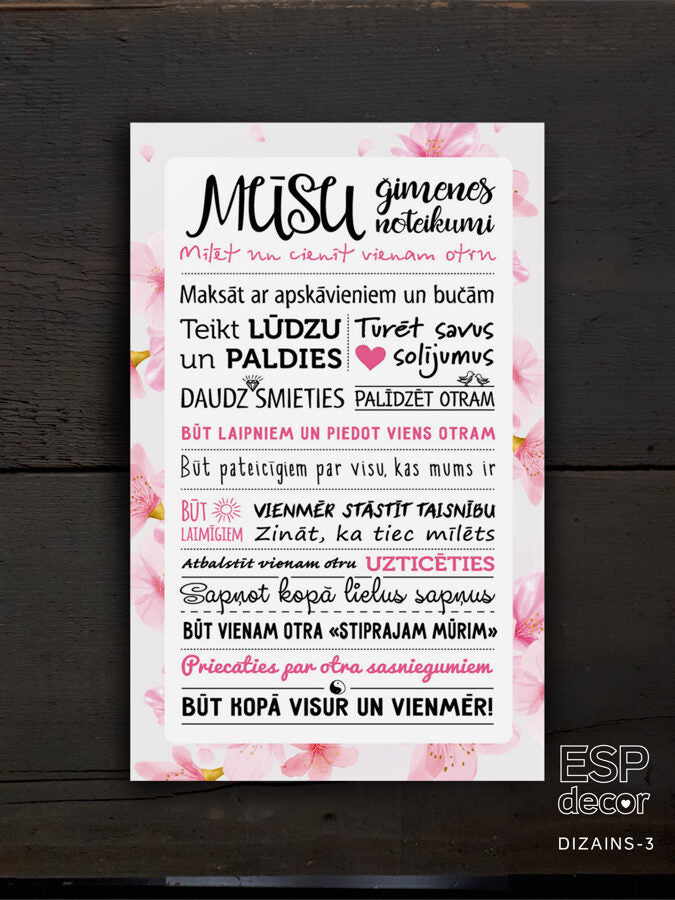 MŪSU ģimenes noteikumi
Mīlēt un cienīt vienam otru
Maksāt ar apskāvieniem un bučām
Teikt LŪDZU
un PALDIES
Turēt savus
solījumus
DAUDZ SMIETIES
PALĪDZĒT OTRAM
BŪT LAIPNIEM UN PIEDOT VIENS OTRAM
Būt pateicīgiem par visu, kas mums ir
BŪT
LAIMĪGIEM
VIENMĒR STĀSTĪT TAISNĪBU
Zināt, ka tiec mīlēts
Atbalstīt vienam otru UZTICĒTIES
Sapņot kopā lielus sapņus
BŪT VIENAM OTRA «STIPRAJAM MŪRIM»
Priecāties par otra sasniegumiem
BŪT KOPĀ VISUR UN VIENMĒR!
ESP
decor
DIZAINS-3